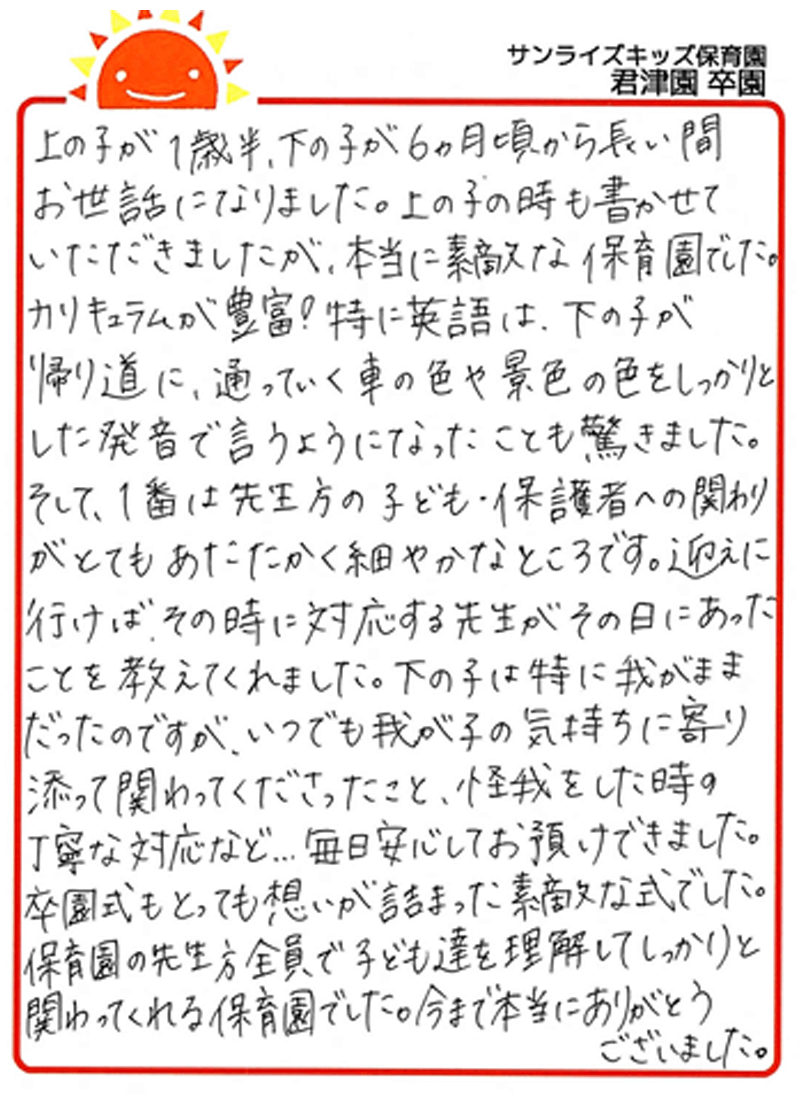 サンライズキッズ保育園
君津園 卒園
上の子が1歳半、下の子が6ヵ月頃から長い間
お世話になりました。上の子の時も書かせて
いただきましたが、本当に素敵な保育園でした。
カリキュラムが豊富!特に英語は、下の子が
帰り道に、通っていく車の色や景色の色をしっかりと
した発音で言うようになったことも驚きました。
そして、1番は先生方の子ども・保護者への関わり
がとてもあたたかく細やかなところです。迎えに
行けば、その時に対応する先生がその日にあった
ことを教えてくれました。下の子は特に我がまま
だったのですが、いつでも我が子の気持ちに寄り
添って関わってくださったこと、怪我をした時の
丁寧な対応など…毎日安心してお預けできました。
卒園式もとっても想いが詰まった素敵な式でした。
保育園の先生方全員で子ども達を理解してしっかりと
関わってくれる保育園でした。今まで本当にありがとう
ございました。